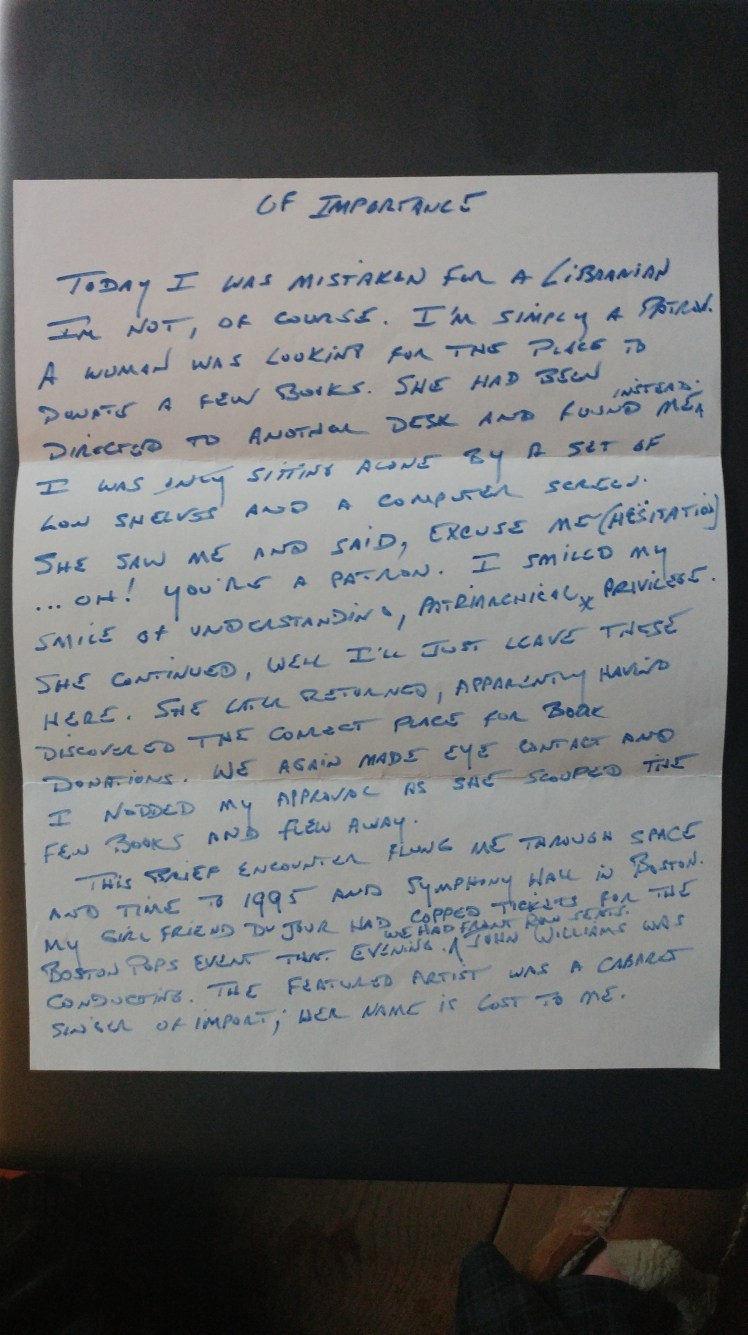 OF IMPORTANCE
TODAY I WAS MISTAKEN FOR A LIBRARIAN
I'M NOT, OF COURSE. I'M SIMPLY A PATRON.
A WOMAN WAS LOOKING FOR THE PLACE TO
DONATE A FEW BOOKS. SHE HAD BEEN
DIRECTED TO ANOTHER DESK AND FOUND ME INSTEAD.
I WAS ONLY SITTING ALONE BY A SET OF
LOW SHELVES AND A COMPUTER SCREEN.
SHE SAW ME AND SAID, EXCUSE ME (HESITATION)
... OH! YOU'RE A PATRON. I SMILED MY
SMILE OF UNDERSTANDING, PATRIARCHICAL x PRIVILEGE.
SHE CONTINUED, WELL I'LL JUST LEAVE THESE
HERE. SHE LATER RETURNED, APPARENTLY HAVING
DISCOVERED THE CORRECT PLACE FOR BOOK
DONATIONS. WE AGAIN MADE EYE CONTACT AND
I NODDED MY APPROVAL AS SHE SCOUPED THE
FEW BOOKS AND FLEW AWAY.
THIS BRIEF ENCOUNTER FLUNG ME THROUGH SPACE
AND TIME TO 1995 AND SYMPHONY HALL IN BOSTON.
MY GIRL FRIEND DU JOUR HAD COPPED TICKETS FOR THE
BOSTON POPS EVENT THAT EVENING. WE HAD FRONT ROW SEATS. JOHN WILLIAMS WAS
CONDUCTING. THE FEATURED ARTIST WAS A CABARET
SINGER OF IMPORT; HER NAME IS LOST TO ME.